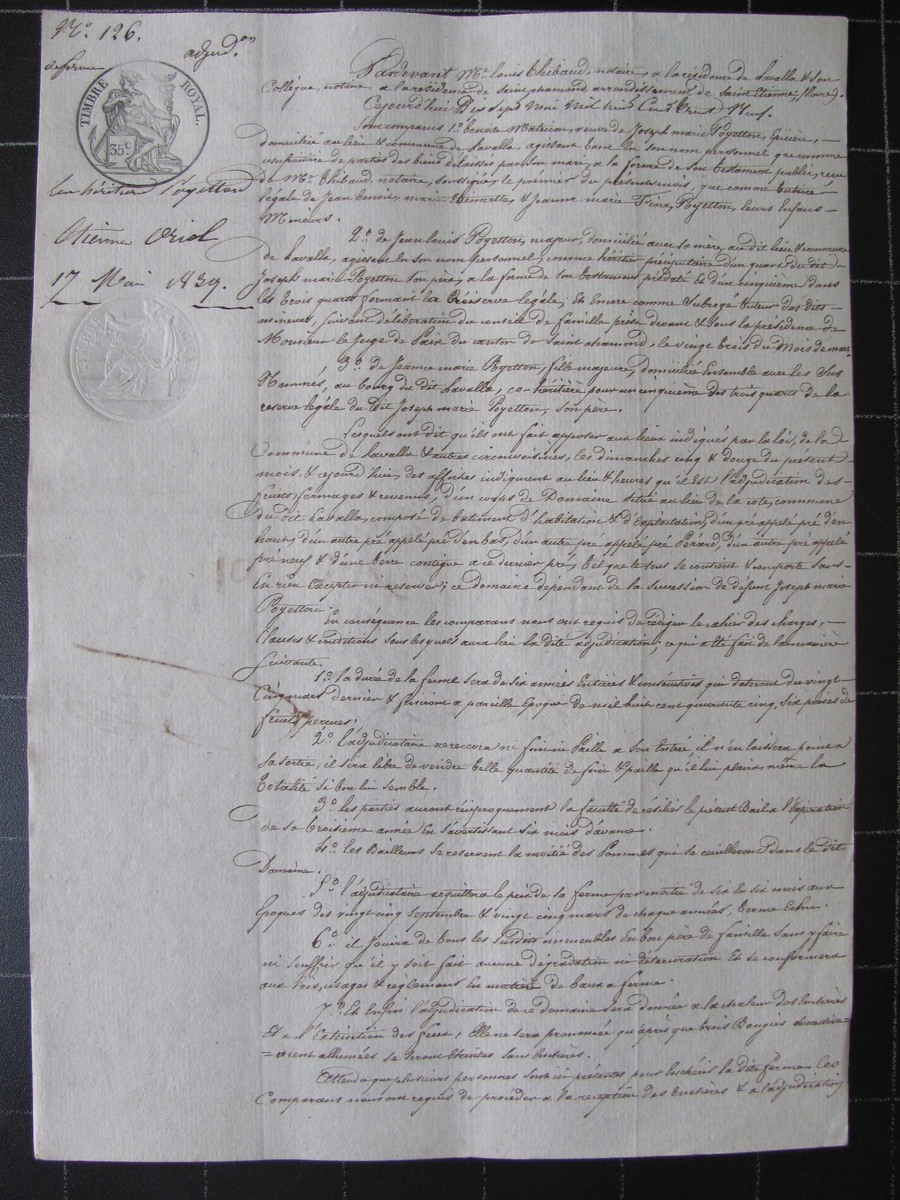 N.o 126.
adjud.on
de ferme
TIMBRE ROYAL.
35c
les héritiers Poyetton
Etienne Oriol
17 Mai 1839.
Pardevant M.e Louis Thibaud, notaire, a la résidence de Lavalla & son
Collégue, notaire a la résidence de saint chamond arrondissement de saint Etienne, (Loire).
Cejourd'hui Dix sept Mai Mil huit Cent trente Neuf.
Sont comparus 1.o Benoite Matricon, veuve de Joseph marie Poyetton, Epicière,
domiciliée au lieu & commune de Lavalla, agissant tant en son nom personnel que comme
usufruitière de partie des biens délaissés par son mari, a la forme de son testament public, reçu
de M.e Thibaud, notaire, soussigné, le premier du présent mois, que comme tutrice
légale de Jean Benoit, marie Etiennette, & Jeanne marie Poyetton, leurs Enfans
Mineurs.
2.o de Jean Louis Poyetton, majeur, domicilié avec sa mère, au dit lieu & commune
de Lavalla, agissant en son nom Personnel, comme héritier préciputaire d'un quart du dit
Joseph marie Poyetton son père, a la forme de son testament prédaté & d'un cinquième dans
les trois quarts formant la reserve légale; Et encore comme Subrogé tuteur des dits
mineurs, suivant délibération du conseil de famille prise devant & sous la présidence de
Monsieur le Juge de Paix du canton de Saint chamond, le vingt trois du Mois de mars
3.o de Jeanne marie Poyetton, fille majeure, domiciliée Ensemble avec les Sus
Nommés, au bourg du dit Lavalla, co-héritière pour un cinquième des trois quarts de la
reserve légale du dit Joseph marie Poyetton, son père.
Lesquels ont dit qu'ils ont fait apposer aux lieux indiqués par la loi, de la
Commune de Lavalla & autres circonvoisines, les dimanches cinq & douze du présent
mois, & cejourd'hui, des affiches indiquant au lieu & heures qu'il Est l'adjudication des
fruits, fermages & revenus, d'un corps de Domaine situé au lieu de la cote, commune
du dit Lavalla, composé de batiment d'habitation & d'Exploitation, d'un pré appelé pré d'en
haut, d'un autre pré appelé pré d'en bas, d'un autre pré appelé pré Pérard, d'un autre pré appelé
pré neuf & d'une terre contigue a ce dernier pré, tel que le tout se contient & comporte sans
En rien Excepter ni reserver; ce Domaine dependant de la Succession de défunt Joseph marie
Poyetton.
En conséquence les comparans nous ont requis de rédiger le cahier des charges,
Clauses & conditions sous lesquels aura lieu la dite adjudication; ce qui a été fait de la manière
Suivante.
1.o la durée de la ferme sera de six années Entières & consécutives qui dateront du vingt
Cinq mars dernier & finiront a pareille Epoque de mil huit cent quarante cinq, six prises de
fruits perçues.
2.o l'adjudicataire ne recevra ni foin ni Paille a son Entrée, il n'en laissera point a
sa sortie, il sera libre de vendre telle quantité de foin & paille qu'il lui plaira, même la
totalité si bon lui semble.
3.o les parties auront réciproquement la faculté de résilier le présent Bail a l'Expiration
de la troisième année En s'avertissant six mois d'avance.
4.o les Bailleurs se reservent la moitié des Pommes qui se cueilleront dans le dit
Domaine.
5.o l'adjudicataire acquittera le prix de sa ferme par moitié de six en six mois aux
Epoques des vingt cinq septembre & vingt cinq mars de chaque années, terme Echu.
6.o il Jouira de tous les susdits immeubles En bon père de famille sans y faire
ni souffrir qu'il y soit fait aucune dégradation ni détérioration Et se conformera
aux lois, usages & reglement En matière de baux a ferme.
7.o Et Enfin l'adjudication de ce domaine sera donnée a la chaleur des Enchères
Et a l'Extinction des feux, Elle ne sera prononcée qu'après que trois Bougies successive=
=ment allumées se seront éteintes sans Enchères.
Attendu que plusieurs personnes sont ici présentes pour Enchérir la dite ferme, les
Comparans nous ont requis de procéder a la réception des Enchères & a l'adjudication